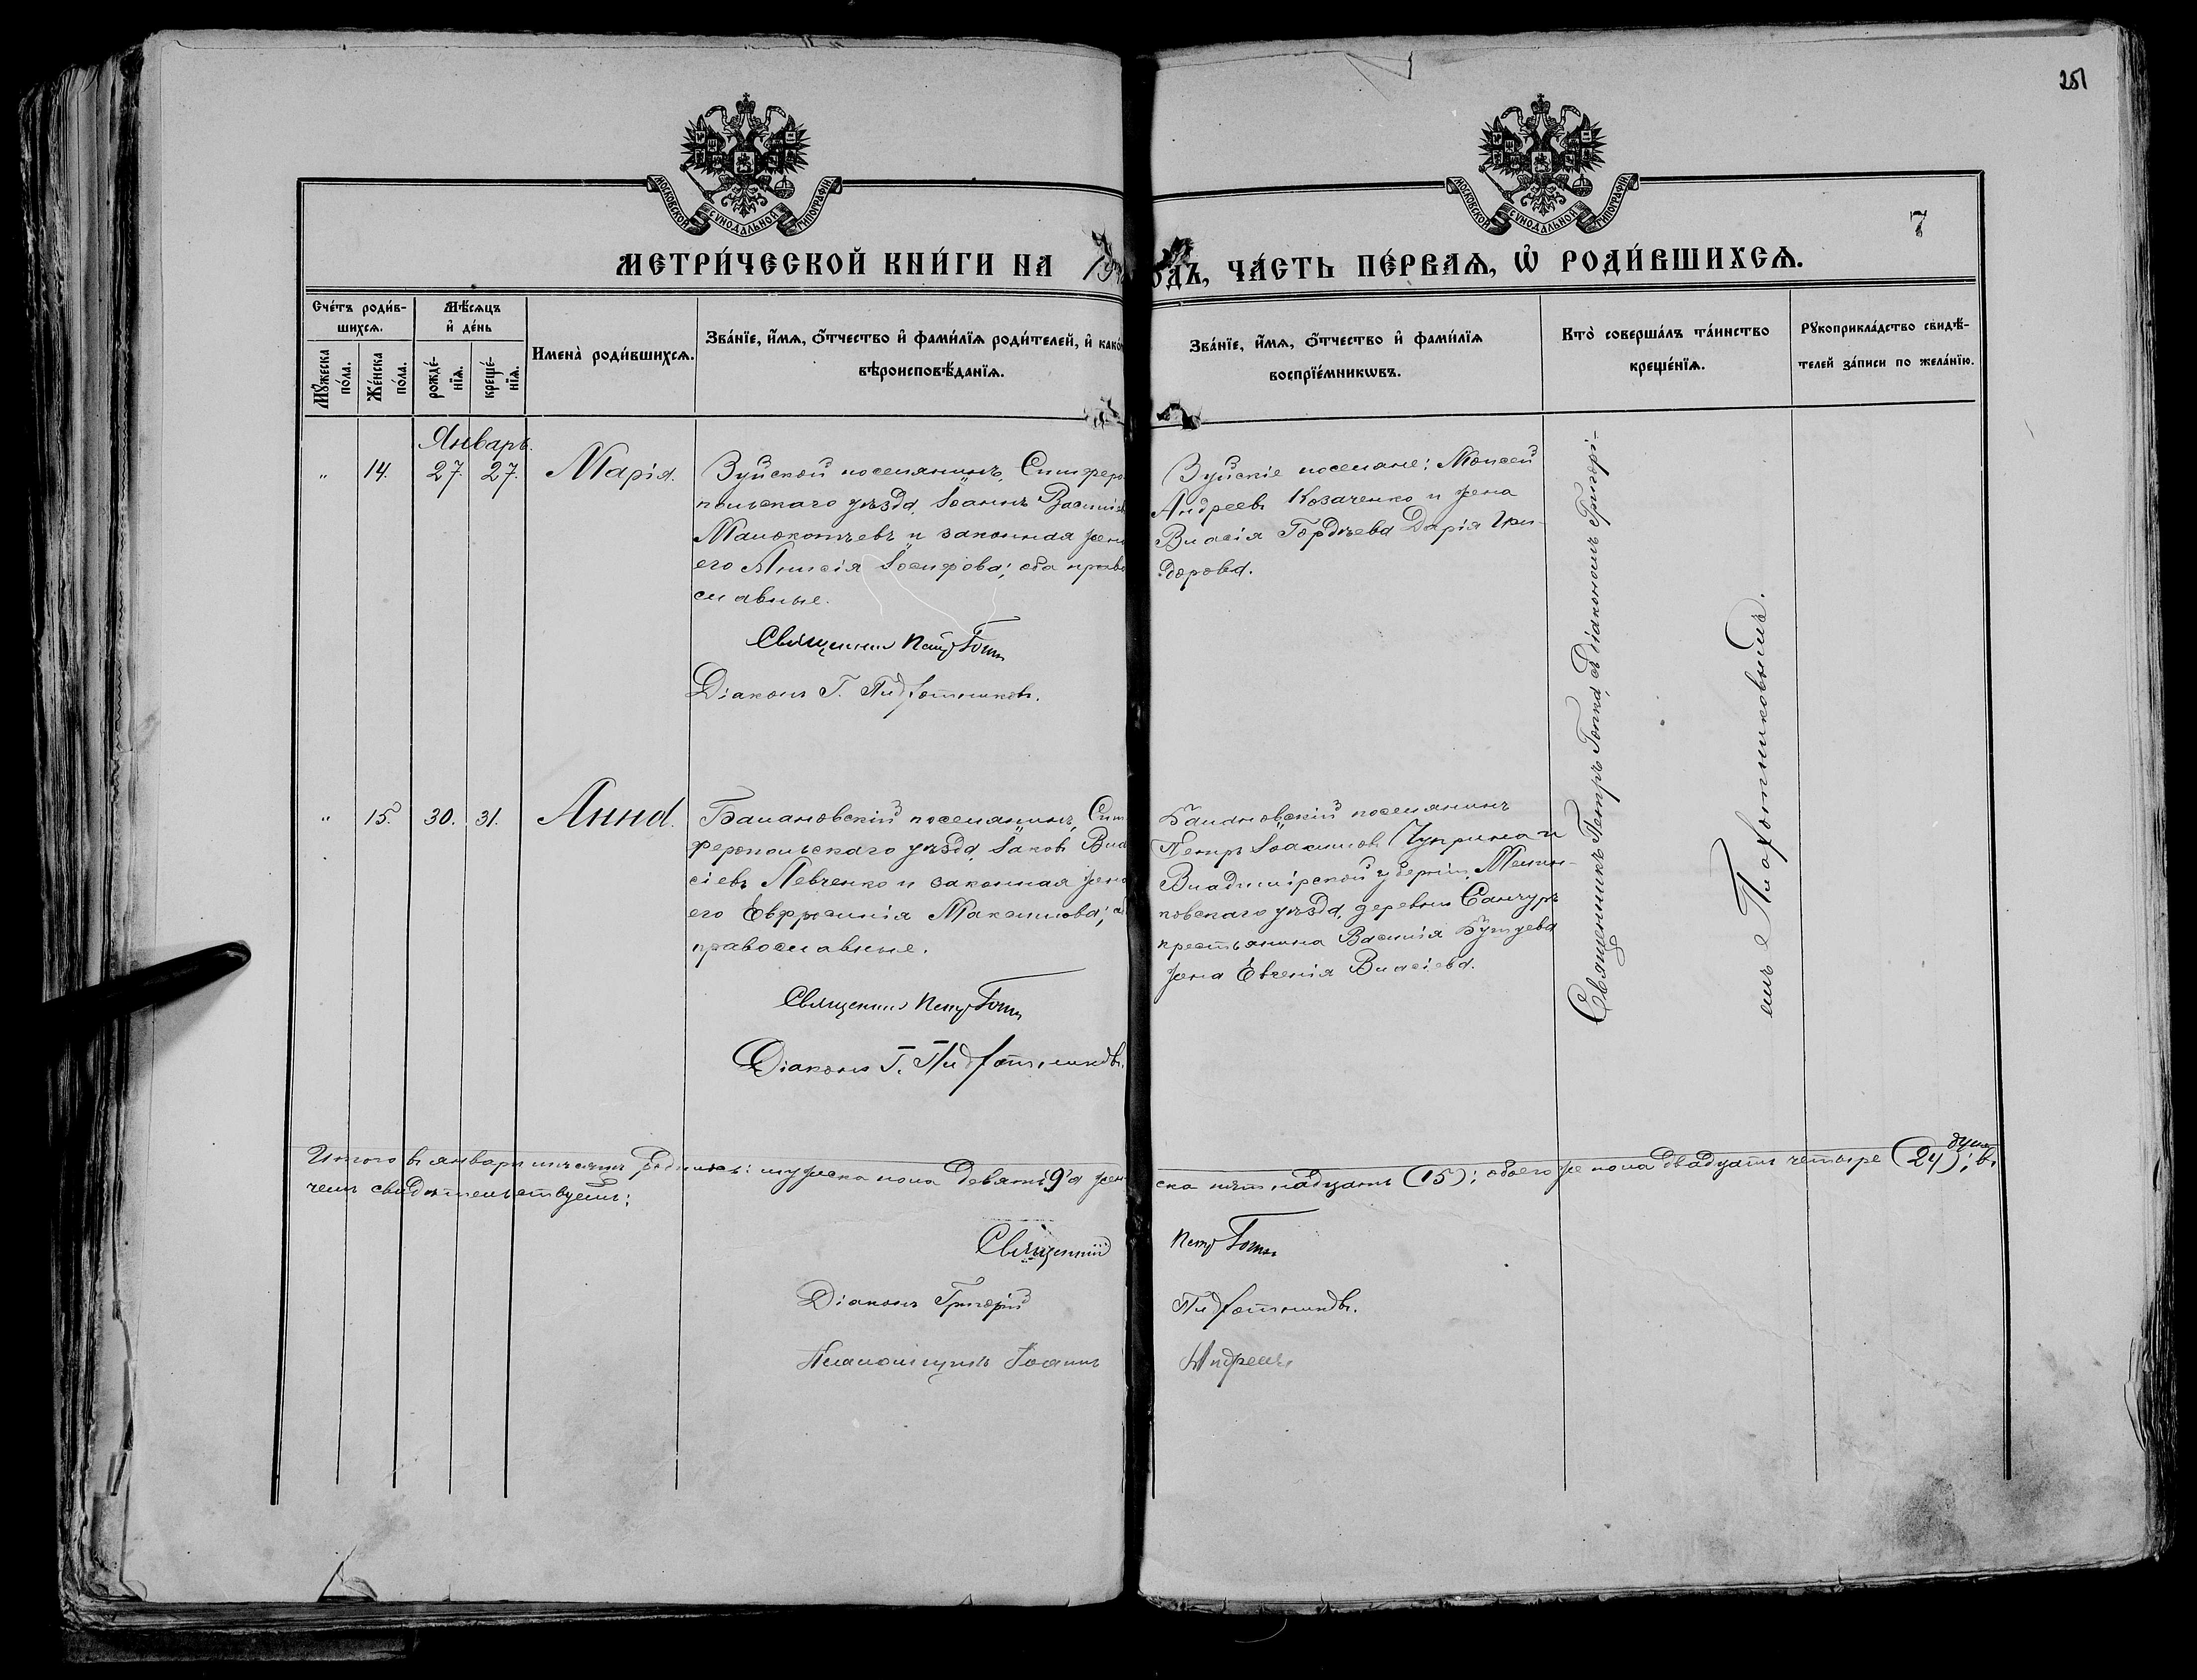 251
МОСКОВСКОЙ СѴНОДАЛЬНОЙ ТИПОГРАФІИ
МОСКОВСКОЙ СѴНОДАЛЬНОЙ ТИПОГРАФІИ
7
МЕТРИ́ЧЕСКОЙ КНИ́ГИ НА
ОДЪ, ЧА́СТЬ ПЕ́РВАѦ, Ѡ РОДИ́ВШИХСѦ.
Сче́тъ роди́в-
шихсѧ.
Мѣ́сѧцъ
и де́нь
Мꙋ́жеска по́ла.
Же́нска по́ла.
рожде́-
нїѧ.
креще́-
нїѧ.
Имена̀ роди́вшихсѧ.
Зва́нїе, и́мѧ, о́тчество и фами́лїѧ роди́телей, и како́
вѣроисповѣ́данїѧ.
Зва́нїе, и́мѧ, о́тчество и фами́лїѧ
воспрїе́мникѡвъ.
Кто̀ соверша́лъ та́инство
креще́нїѧ.
Рꙋкоприкла́дство свидѣ́-
телей за́писи по жела́нїю.
Январь.
" 14. 27. 27. Марія.
Зуйской поселянинъ, Симферо
польскаго уѣзда, Іоаннъ Василіев
Малокотѣевъ и законная жена
его Анисія Іосифова; оба право
славные.
Священник Петр Гопка
Діаконъ Г. Плахотниковъ.
Зуйскіе поселяне: Моисей
Андреевъ Козаченко и жена
Власія Гордѣева Дарія
дорова.
Священникъ Петръ Гопка, съ діакономъ Григорі-
емъ Плахотниковымъ.
" 15. 30. 31. Анна.
Балановскій поселянинъ, Сим
феропольскаго уѣзда, Іаковъ Вла
сіевъ Левченко и законная жена
его Евфросинія Максимова; об
православные.
Священник Петр Гопка
Діаконъ Г. Плахотниковъ.
Балановскій поселянинъ
Петръ Іоакимовъ Чуприна и
Владимірской губерніи, Мелин-
ковскаго уѣзда, деревни Санчуръ
крестьянина Василія
жена Евгенія Власіева.
Итого въ январѣ мѣсяцѣ родилось: мужеска пола девять 9 а жен
ска пятнадцать (15); обоего же пола двадцать четыре (24) душ; въ
чемъ свидѣтельствуемъ:
Священник Петр Гопка
Діаконъ Григорій Плахотниковъ.
Псаломщикъ Іоаннъ Андреевъ